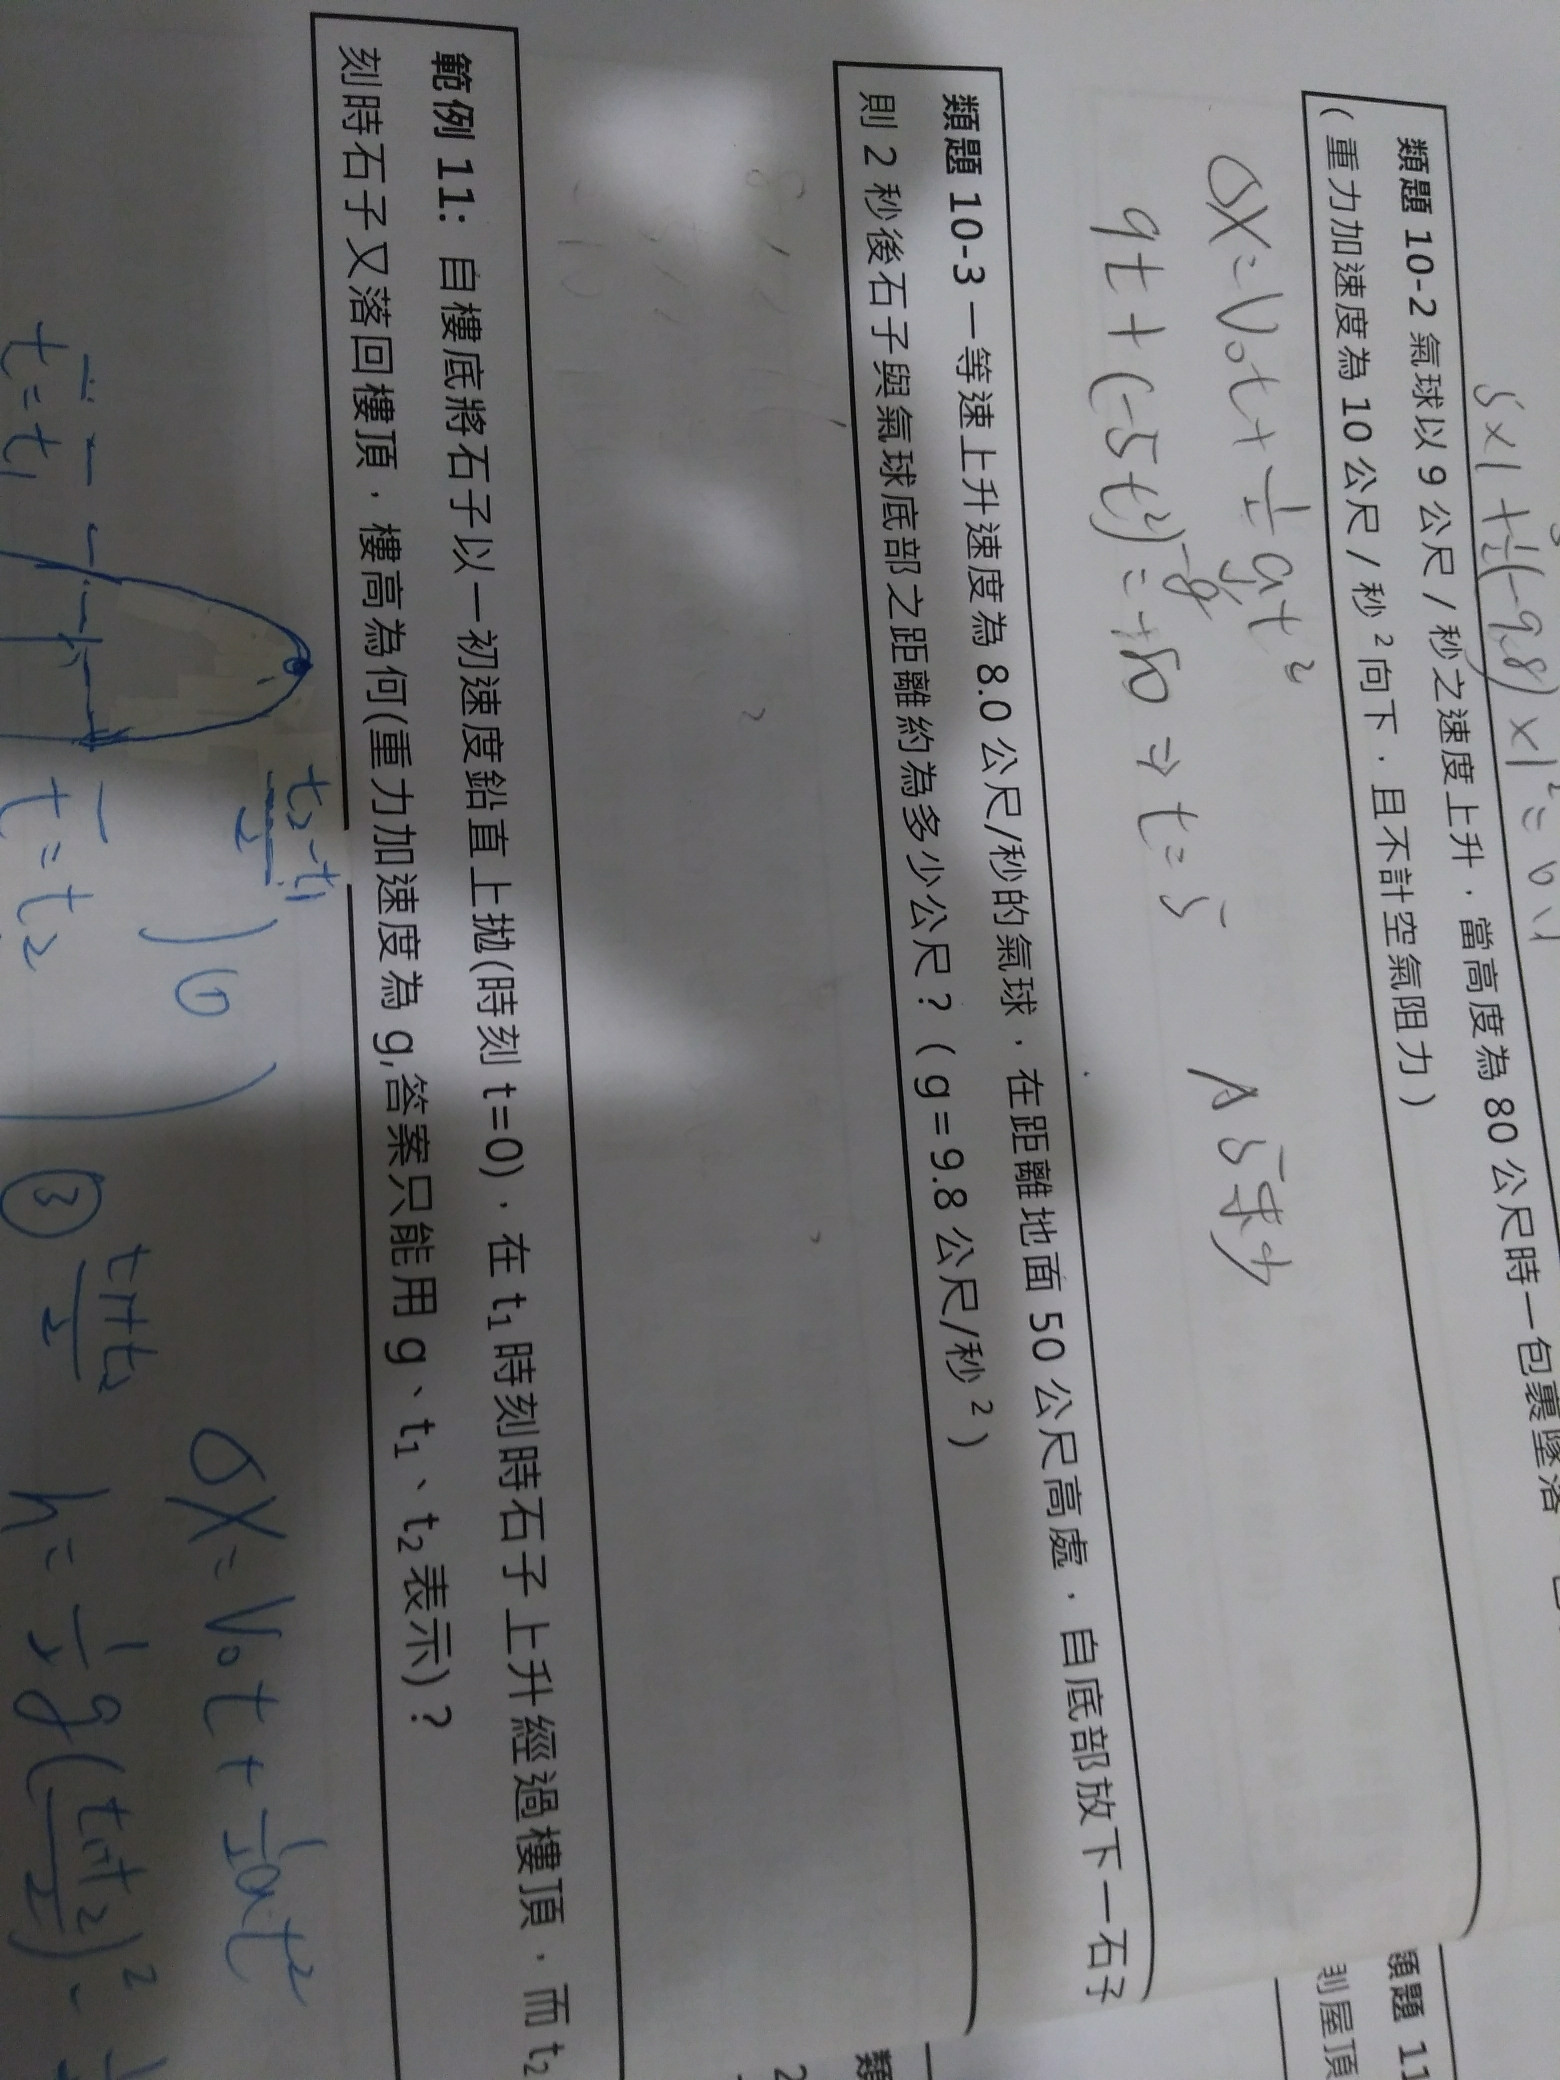 5×1+½(-9.8)×1²=0.1
類題 10-2 氣球以 9 公尺/秒之速度上升，當高度為 80 公尺時一包裹墜落
(重力加速度為 10 公尺/秒²向下，且不計空氣阻力)
ΔX=V₀t+½at²
-g
9t+(-5t²)=-80 ⇒ t=5
A 5秒
類題 10-3 一等速上升速度為 8.0 公尺/秒的氣球，在距離地面 50 公尺高處，自底部放下一石子
則 2 秒後石子與氣球底部之距離約為多少公尺？(g=9.8 公尺/秒²)
範例 11: 自樓底將石子以一初速度鉛直上拋(時刻 t=0)，在 t₁ 時刻時石子上升經過樓頂，而 t₂
刻時石子又落回樓頂，樓高為何(重力加速度為 g,答案只能用 g、t₁、t₂ 表示)？
t₂-t₁/2
ΔX=V₀t+½at²
t=t₁
t=t₂
③ t₁+t₂/2
h=½g(t₁+t₂/2)²-
類題 11
到屋頂
類
2